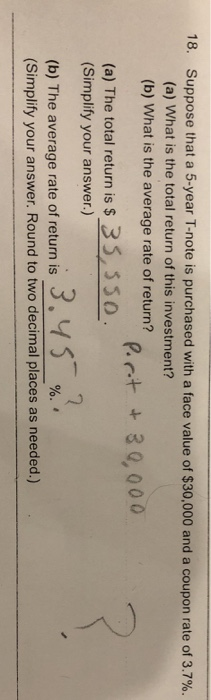 18. Suppose that a 5-year T-note is purchased with a face value of $30,000 and a coupon rate of 3.7%.
(a) What is the total return of this investment?
(b) What is the average rate of return?
P.r.t + 30,000
(a) The total return is $ 35,550.
(Simplify your answer.)
(b) The average rate of return is 3.45 ? %.
(Simplify your answer. Round to two decimal places as needed.)
?